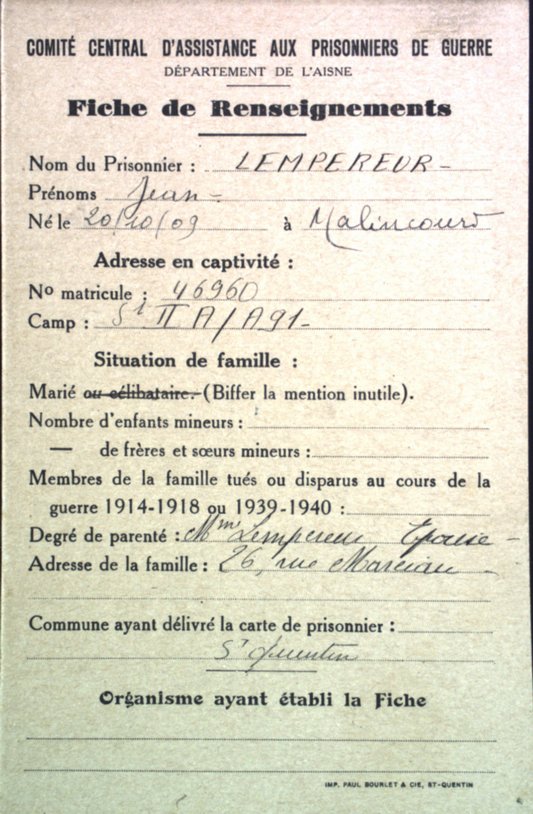 COMITÉ CENTRAL D'ASSISTANCE AUX PRISONNIERS DE GUERRE
DÉPARTEMENT DE L'AISNE
Fiche de Renseignements
Nom du Prisonnier : LEMPEREUR -
Prénoms Jean -
Né le 20/10/09 à Malincourt
Adresse en captivité :
No matricule : 46960
Camp : St II A/A91-
Situation de famille :
Marié ou célibataire. (Biffer la mention inutile).
Nombre d'enfants mineurs :
— de frères et sœurs mineurs :
Membres de la famille tués ou disparus au cours de la
guerre 1914-1918 ou 1939-1940 :
Degré de parenté : Mme Lempereur Epouse -
Adresse de la famille : 26, rue
Commune ayant délivré la carte de prisonnier :
St Quentin
Organisme ayant établi la Fiche
IMP. PAUL BOURLET & CIE, ST-QUENTIN